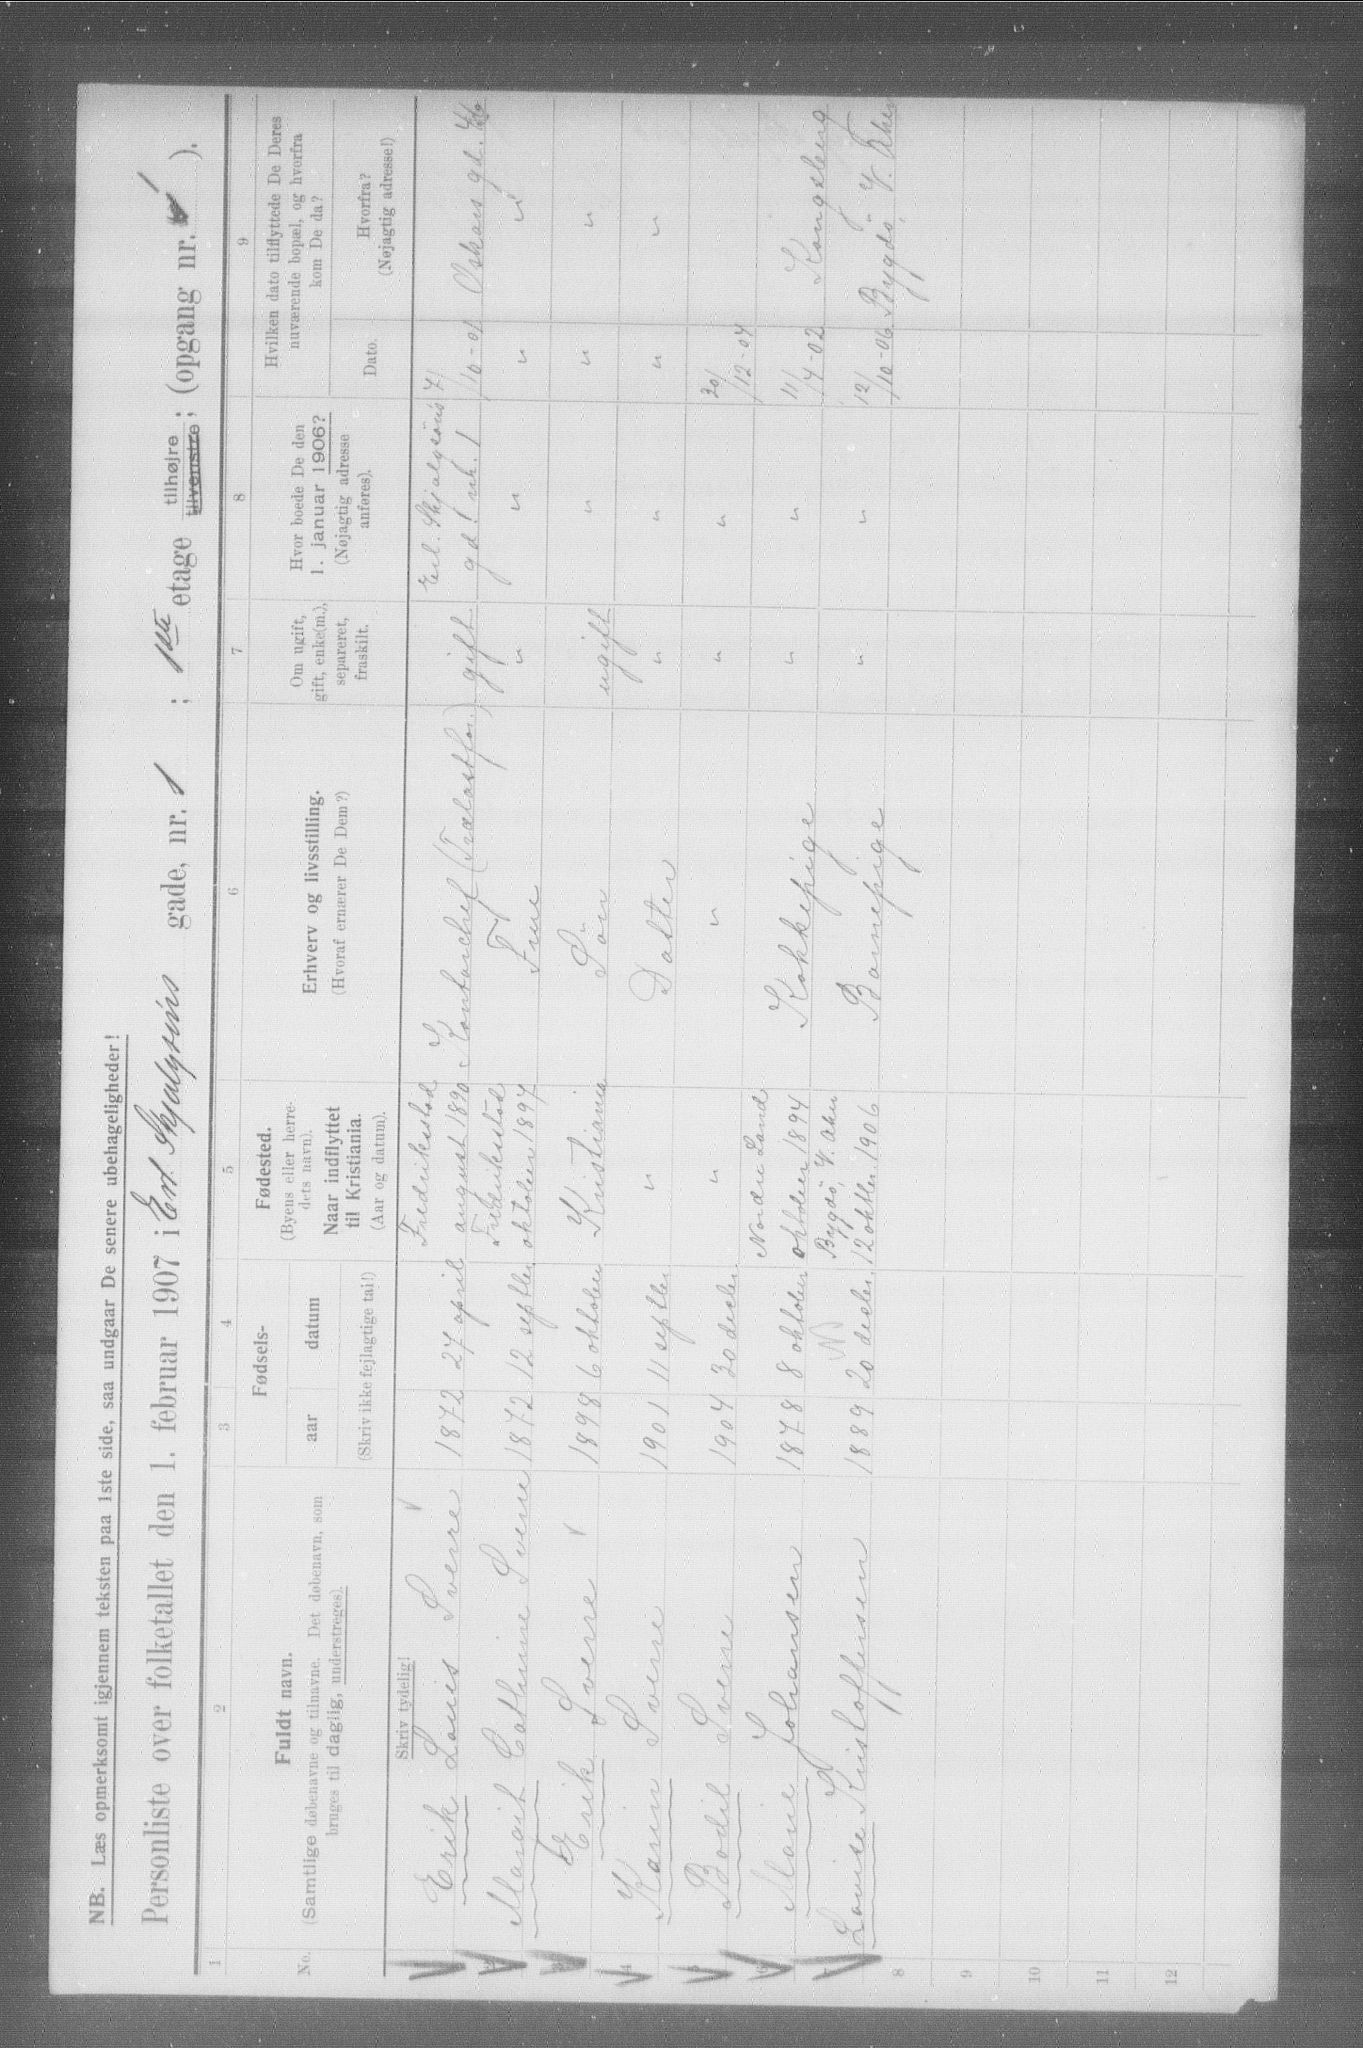 NB. Læs opmerksomt igjennem teksten paa 1ste side, saa undgaar De senere ubehageligheder!
Personliste over folketallet den 1. februar 1907 i Erl. Skjalgsøns gade, nr. 1 ; 1ste etage tilhøjre tilvenstre; (opgang nr. 1 ).
1 2 3 4 5 6 7 8 9
No.
Fuldt navn.
(Samtlige døbenavne og tilnavne. Det døbenavn, som
bruges til daglig, understreges).
Fødsels-
aar datum
(Skriv ikke fejlagtige tal!)
Fødested.
(Byens eller herre-
dets navn).
Naar indflyttet
til Kristiania.
(Aar og datum).
Erhverv og livsstilling.
(Hvoraf ernærer De Dem?)
Om ugift,
gift, enke(m.),
separeret,
fraskilt.
Hvor boede De den
1. januar 1906?
(Nøjagtig adresse
anføres).
Hvilken dato tilflyttede De Deres
nuværende bopæl, og hvorfra
kom De da?
Dato.
Hvorfra?
(Nøjagtig adresse!)
Skriv tydelig!
Erik Louis Sverre 1872 27 april Fredriksstad august 1890 Kontorchef (Trælastfor.) gift Erl. Skjalgsøns gd. nr. 1 /10-01 Oskars gd.
2 Margit Cathrine Sverre 1872 12 septber Fredriksstad oktober 1897 Frue " " " "
3 Erik Sverre 1898 6 oktober Kristiania Søn ugift " " "
4 Karin Sverre 1901 11 septber " Datter " " " "
5 Bodil Sverre 1904 30 decber " " " " 30/12-04
6 Marie Johansen 1878 8 oktober Nordre Land oktober 1894 Kokkepige " " 11/4-02 Kongsberg
7 Louise Kristoffersen 1889 20 decber Bygdö, V. Aker 12 oktber 1906 Barnepige " " 12/10-06 Bygdö, V. Aker
8
9
10
11
12